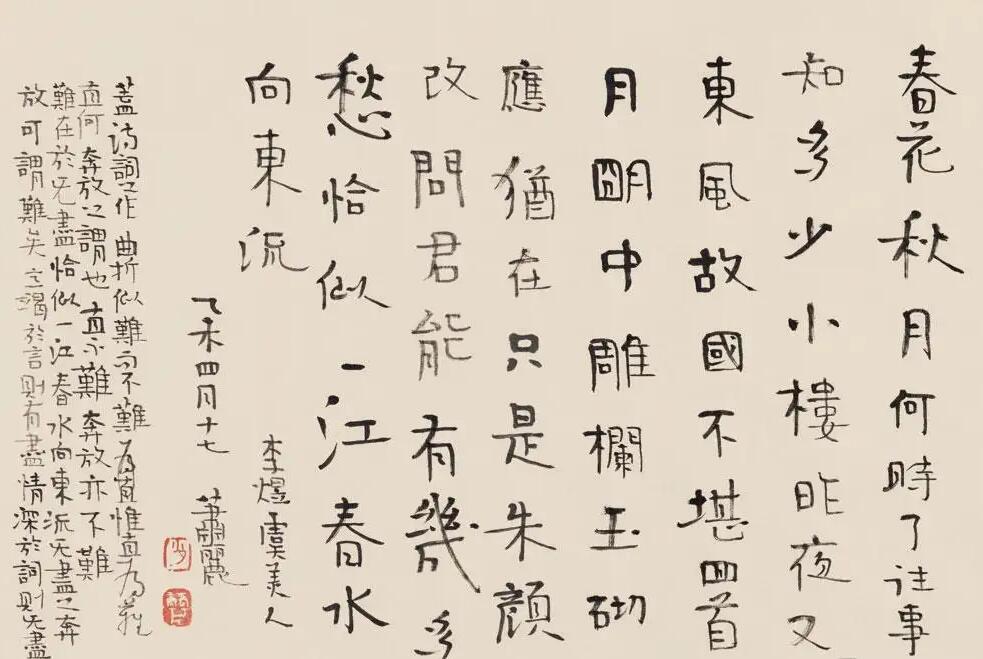 春花秋月何時了往事
知多少小樓昨夜又
東風故國不堪回首
月明中雕欄玉砌
應猶在只是朱顏
改問君能有幾多
愁恰似一江春水
向東流
李煜虞美人
乙未四月十七 蕭麗
蓋詩詞之作曲折似難而不難為直惟直為難
直何奔放之謂也直不難奔放亦不難
難在於无盡恰似一江春水向東流无盡之奔
放可謂難矣竭於言則有盡情深於詞則无盡